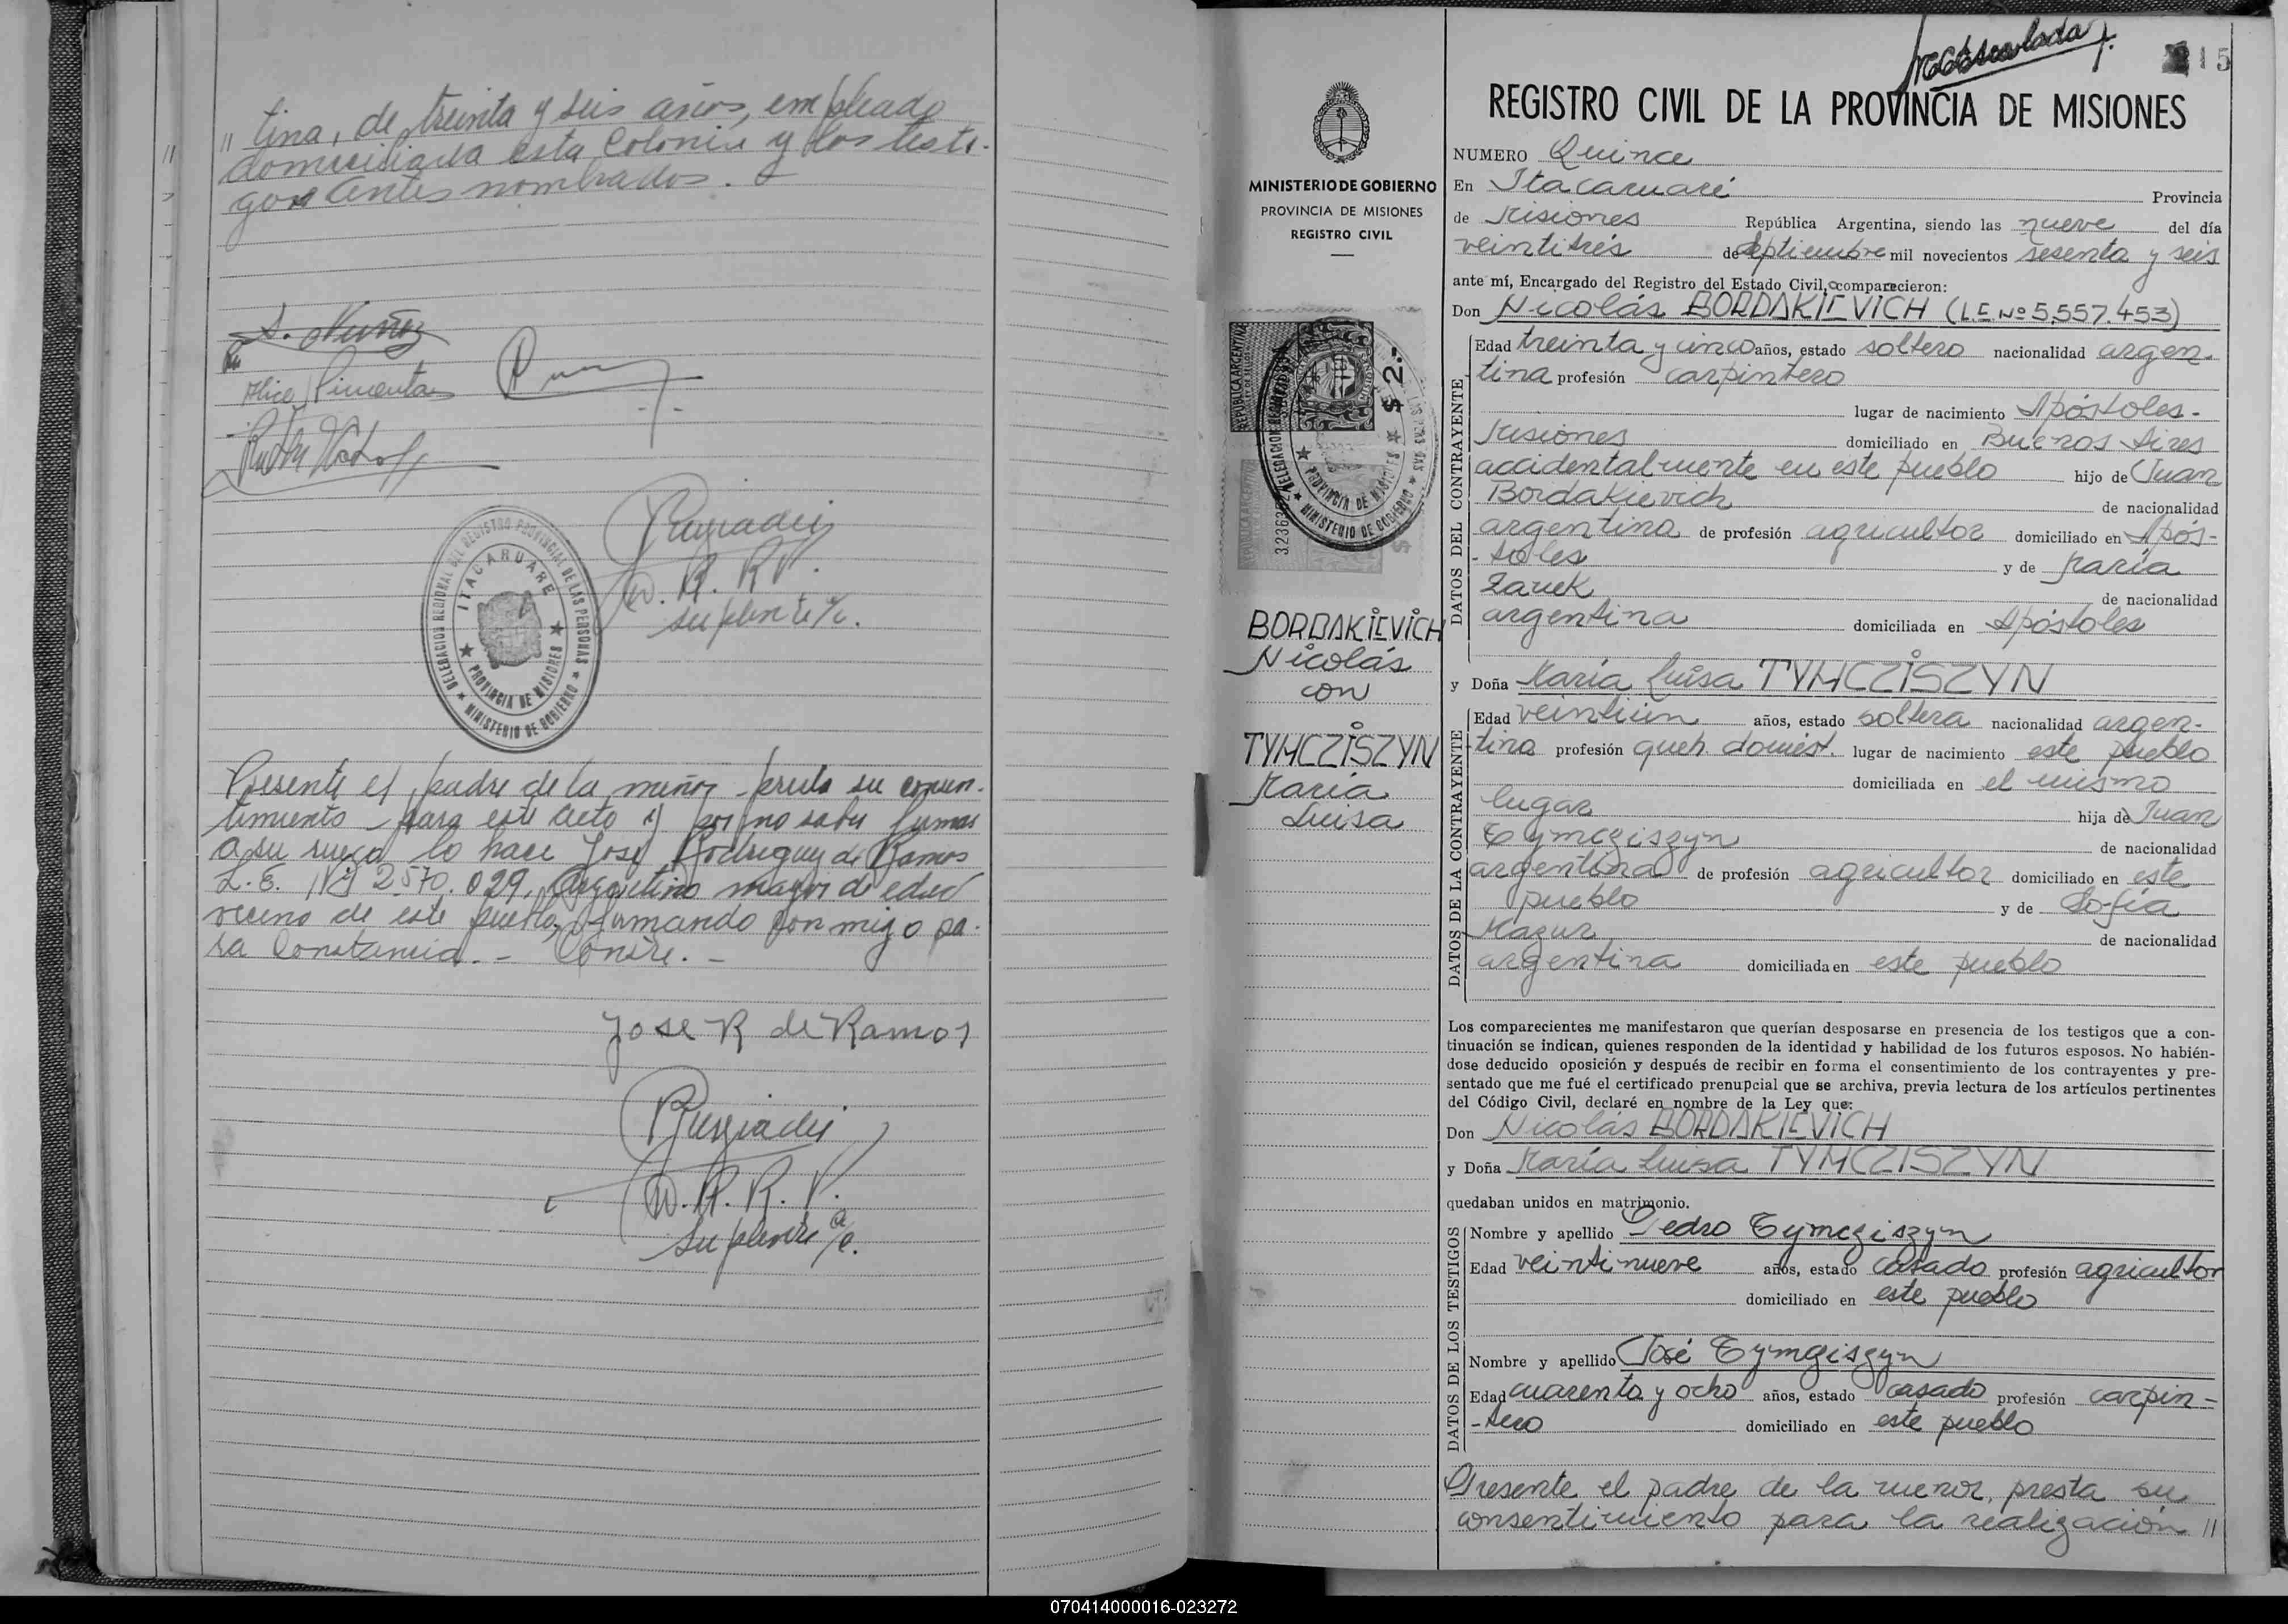 " tina, de treinta y seis años, empleado
domiciliada esta Colonia y los testi-
gos antes nombrados.
S. Nuñez
Alice Pimenta
D. R. R. P.
suplente a/c.
DELEGACION REGIONAL DEL REGISTRO PROVINCIAL DE LAS PERSONAS
ITACARUARE
PROVINCIA DE MISIONES
MINISTERIO DE GOBIERNO
Presente el padre de la menor presta su consen-
timiento para este acto y por no saber firmar
a su ruego lo hace José Rodriguez de Ramos
L.E. Nº 2570.029, argentino mayor de edad
vecino de este pueblo, firmando conmigo pa-
ra constancia. - Conste. -
Jose R de Ramos
D. R. R. P.
Suplente a/c.
215
REGISTRO CIVIL DE LA PROVINCIA DE MISIONES
MINISTERIO DE GOBIERNO
PROVINCIA DE MISIONES
REGISTRO CIVIL
REPUBLICA ARGENTINA
$ 2.-
PROVINCIA DE MISIONES
MINISTERIO DE GOBIERNO
BORDAKIEVICH
Nicolás
con
TYMCZISZYN
María
Luisa
NUMERO Quince
En Itacaruaré Provincia
de Misiones República Argentina, siendo las nueve del día
veintitrés de Septiembre mil novecientos sesenta y seis
ante mí, Encargado del Registro del Estado Civil, comparecieron:
Don Nicolás BORDAKIEVICH (L.E. Nº 5.557.453)
DATOS DEL CONTRAYENTE
Edad treinta y cinco años, estado soltero nacionalidad argen-
tina profesión carpintero
lugar de nacimiento Apóstoles-
Misiones domiciliado en Buenos Aires
accidentalmente en este pueblo hijo de Juan
Bordakievich de nacionalidad
argentina de profesión agricultor domiciliado en Após-
-toles y de María
Zauek de nacionalidad
argentina domiciliada en Apóstoles
y Doña María Luisa TYMCZISZYN
DATOS DE LA CONTRAYENTE
Edad veintiún años, estado soltera nacionalidad argen-
tina profesión queh. domést. lugar de nacimiento este pueblo
domiciliada en el mismo
lugar hija de Juan
Tymcziszyn de nacionalidad
argentina de profesión agricultor domiciliado en este
pueblo y de Sofía
Mazur de nacionalidad
argentina domiciliada en este pueblo
Los comparecientes me manifestaron que querían desposarse en presencia de los testigos que a con-
tinuación se indican, quienes responden de la identidad y habilidad de los futuros esposos. No habién-
dose deducido oposición y después de recibir en forma el consentimiento de los contrayentes y pre-
sentado que me fué el certificado prenupcial que se archiva, previa lectura de los artículos pertinentes
del Código Civil, declaré en nombre de la Ley que:
Don Nicolás BORDAKIEVICH
y Doña María Luisa TYMCZISZYN
quedaban unidos en matrimonio.
DATOS DE LOS TESTIGOS
Nombre y apellido Pedro Tymcziszyn
Edad veintinueve años, estado casado profesión agricultor
domiciliado en este pueblo
Nombre y apellido José Tymcziszyn
Edad cuarenta y ocho años, estado casado profesión carpin-
-tero domiciliado en este pueblo
Presente el padre de la menor, presta su
consentimiento para la realización //
070414000016-023272